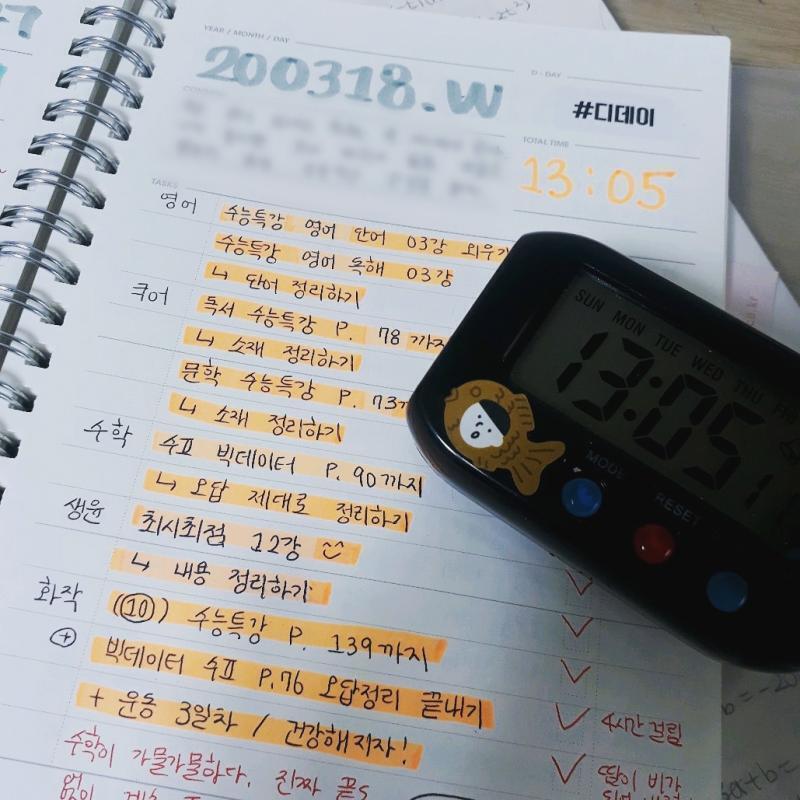 YEAR / MONTH / DAY
200318.W
D-DAY
#디데이
TOTAL TIME
13:05
TASKS
영어 수능특강 영어 단어 03강 외우기
수능특강 영어 독해 03강
↳ 단어 정리하기
쿠어 독서 수능특강 P. 78 까지
↳ 소재 정리하기
문학 수능특강 P. 73
↳ 소재 정리하기
수학 수Ⅱ 빅데이터 P. 90까지
↳ 오답 제대로 정리하기
생윤 최시최점 12강
↳ 내용 정리하기
화작 (10) 수능특강 P. 139까지
+ 빅데이터 수Ⅱ P.76 오답정리 끝내기
+ 운동 3일차 / 건강해지자!
4시간 걸림
수학이 가물가물하다. 진짜
SUN MON TUE WED THU FRI
13:05
MODE RESET